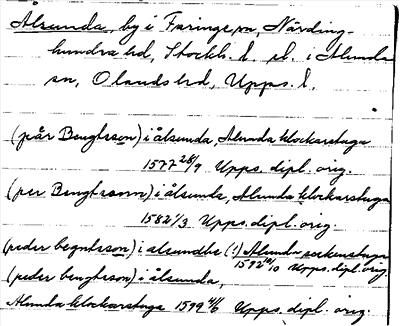 Ålsunda, by i Faringe sn, Närding-
hundra hd, Stockh. l. el. i Alunda
sn, Olands hd, Upps. l.
(pär Bengtsson) i ålsunda, Alunda klockarstuga
1577 28/7 Upps. dipl. orig.
(per Bengtsonn) i ålsunda, Alunda klockarstuga
1582 1/3 Upps. dipl. orig.
(peder begntsson) i alsundhe (!) Alunda sockenstuga
1592 /10 Upps. dipl. orig.
(peder bengtsson) i ålsunda,
Alunda klockarstuga 1599 /6 Upps. dipl. orig.